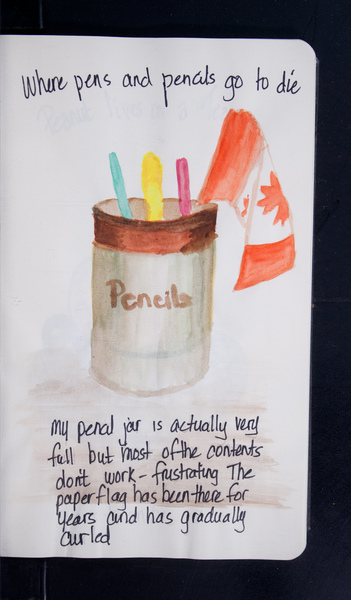 Where pens and pencils go to die
Pencils
My pencil jar is actually very
full but most of the contents
don't work - frustrating The
paper flag has been there for
years and has gradually
curled